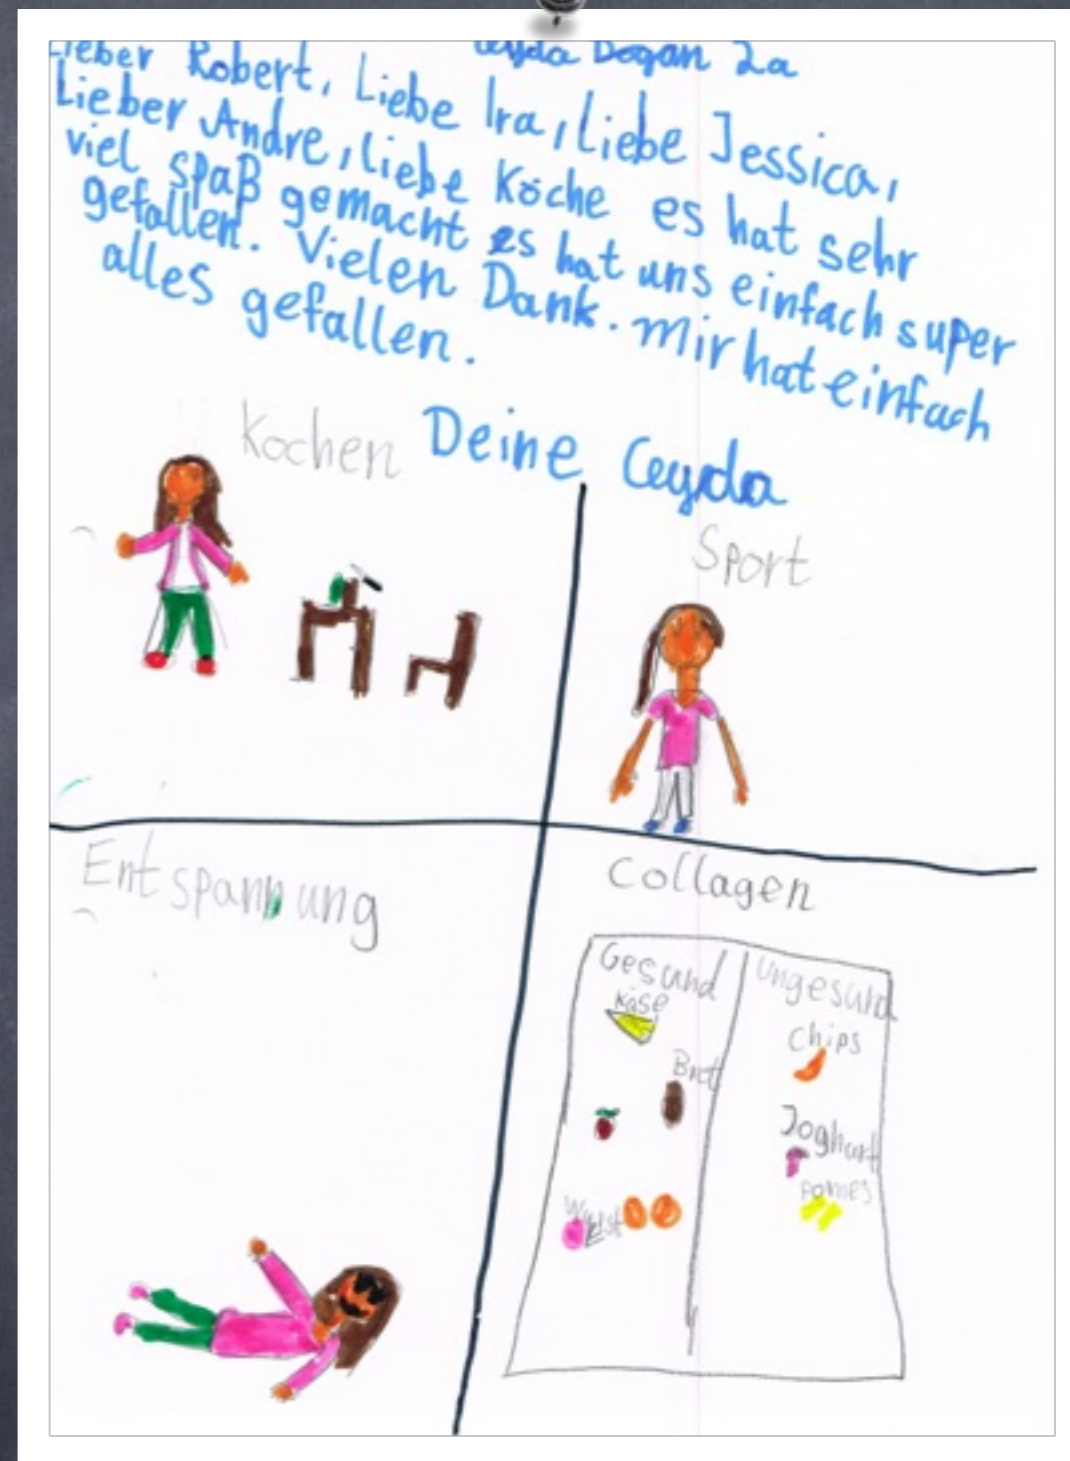 Ceyda Dogan 2a
Lieber Robert, Liebe Ira, liebe Jessica,
Lieber Andre, liebe Köche es hat sehr
viel spaß gemacht es hat uns einfach super
gefallen. Vielen Dank. mir hat einfach
alles gefallen.
Deine Ceyda
Kochen
Sport
Entspannung
Collagen
Gesund
Käse
Brot
Wurst
Ungesund
Chips
Joghurt
Pomes